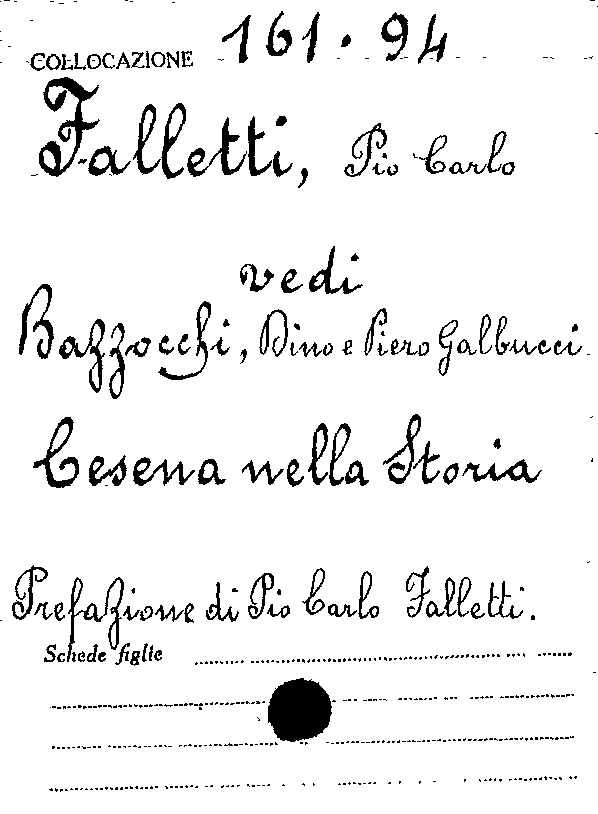 COLLOCAZIONE 161.94
Falletti, Pio Carlo
vedi
Bazzocchi, Dino e Piero Galbucci
Cesena nella Storia
Prefazione di Pio Carlo Falletti.
Schede figlie